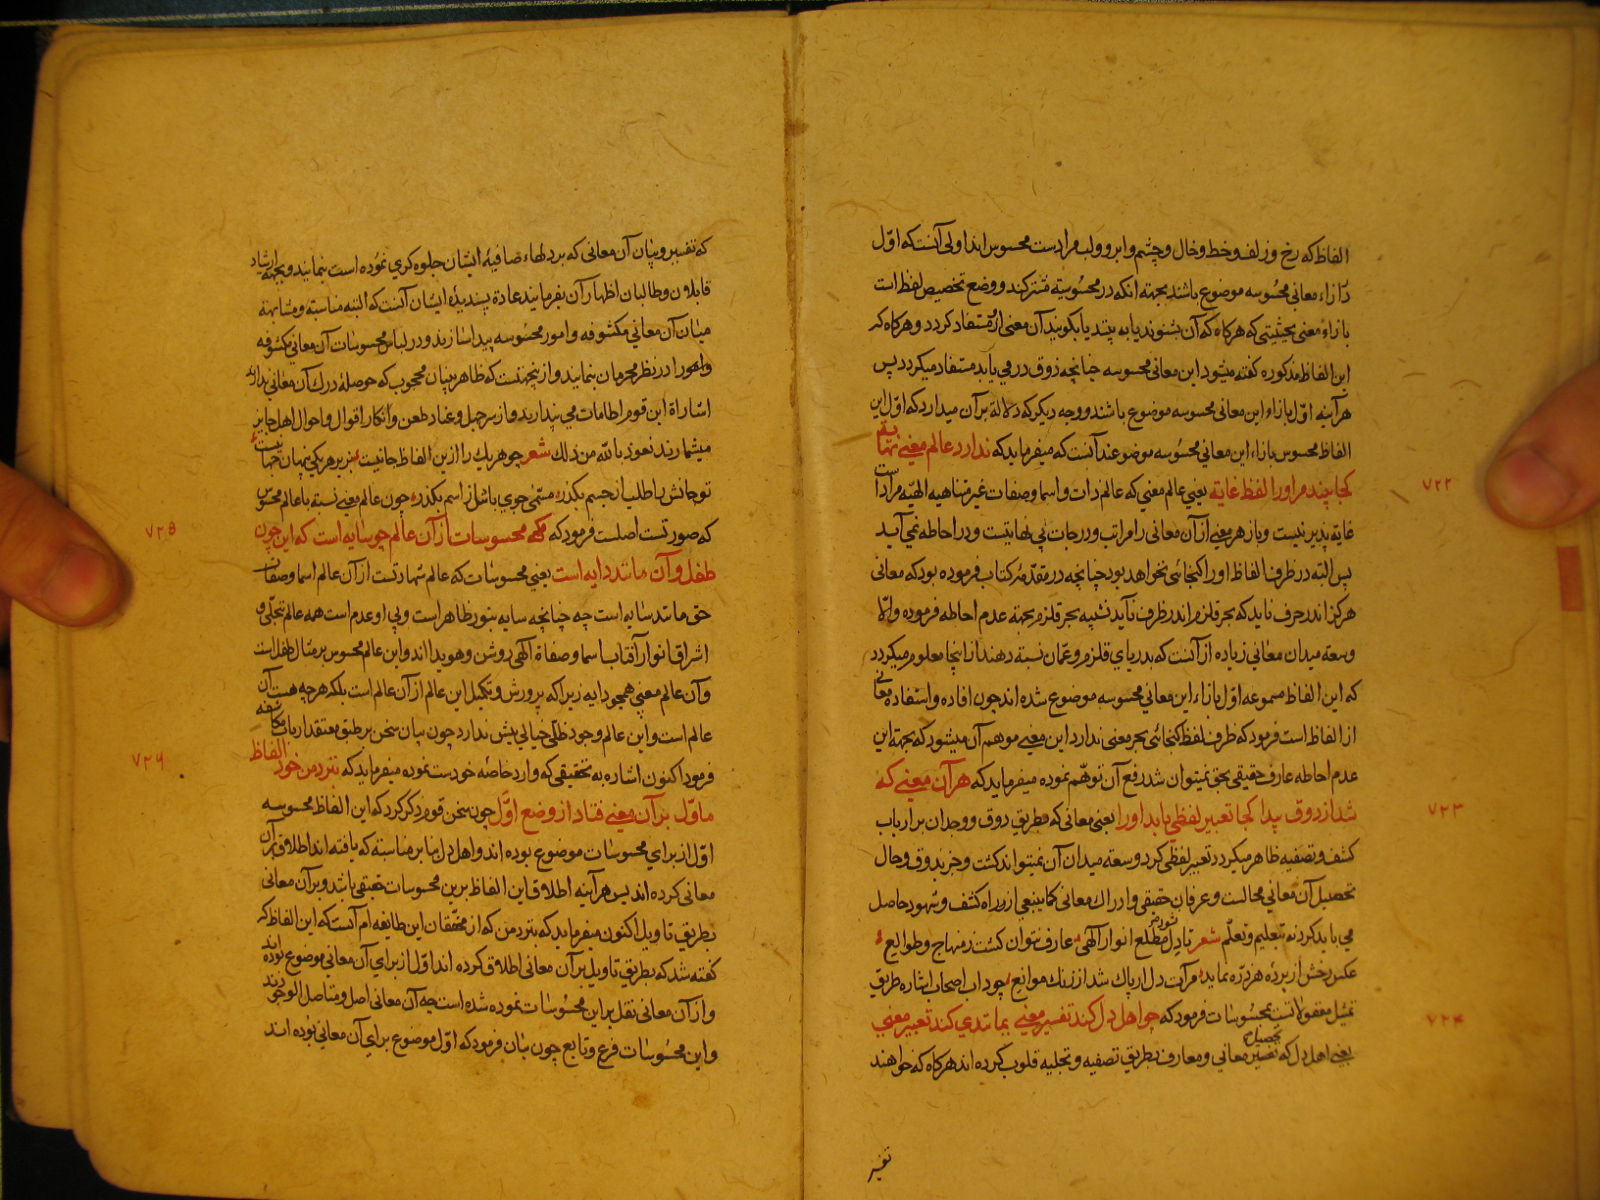 الفاظ که رخ و زلف و خط و خال و چشم و ابرو و لب مرادست محسوس اند اولی آنست که اوّل
بازاء معانی محسوسه موضوع باشند بجهته انکه در محسوسیّة مشترکند و وضع تخصیص لفظ است
بازاء معنی بحیثیتی که هرکاه که آن بشنوند یا به بینند یا بکویند آن معنی ازو مستفاد کردد و هرکاه که
این الفاظ مذکوره کفته میشود این معانی محسوسه چنانچه ذوق درمی یابد مستفاد میکردد پس
هر آینه اوّل بازاء این معانی محسوسه موضوع باشند و وجه دیکر که دلالة بر آن میدارد که اوّل این
الفاظ محسوس بازاء این معانی محسوسه موضوعند آنست که میفرماید که ندارد عالم معنی نهایة
کجا بیند مر او را لفظ غایة یعنی عالم معنی که عالم ذات و اسما و صفات غیر متناهیه الهیّه مراد است
غایة پذیر نیست و باز هر معنی از آن معانی را مراتب و درجات بی نهایتست و در احاطه نمی آید
پس البته در ظرف الفاظ او را کنجائی نخواهد بود چنانچه در مقدّمهٔ کتاب فرموده بود که معانی
هرکز اندر حرف ناید که بحر قلزم اندر ظرف نآید تشبیه ببحر قلزم بجهة عدم احاطه فرموده والّا
وسعة میدان معانی زیاده از آنست که بدریای قلزم و عمّان نسبة دهند از اینجا معلوم میکردد
که این الفاظ مسموعه اوّل بازاء این معانی محسوسه موضوع شده اند چون افاده و استفاده معانی
از الفاظ است فرمود که ظرف لفظ کنجائی بحر معنی ندارد این معنی موهم آن میشود که بجهة این
عدم احاطه عارف حقیقی بحق نمیتوان شد رفع آن توهّم نموده میفرماید که هر آن معنی که
شد از ذوق پیدا کجا تعبیر لفظی یابد او را یعنی معانی که بطریق ذوق و وجدان بر ارباب
کشف و تصفیه ظاهر میکردد تعبیر لفظی کرد وسعة میدان آن نمیتواند کشت و جز بذوق و حال
تحصیل آن معانی محالست و عرفان حقیقی و ادراك معانی کما ینبغی از راه کشف و شهود حاصل
می باید کرد نه بتعلیم و تعلّم شعر تا دل مطلع انوار الهی نشود عارف نتوان کشت ز منهاج و طوالع
عکس رخش از پرده هر ذرّه نماید مرآت دل ار پاك شد از زنك موانع چو داب اصحاب اشاره طریق
تمثیل معقولاتست بمحسوسات فرمود که چو اهل دل کند تفسیر معنی بمانندی کند تعبیر معنی
یعنی اهل دل که تحصیل معانی و معارف بطریق تصفیه و تجلیه قلوب کرده اند هرکاه که خواهند
تفسیر
۷۲۲
۷۲۳
۷۲۴
که تفسیر و بیان آن معانی که بر دلهاء صافیهٔ ایشان جلوه کری نموده است بنمایند و بجهة ارشاد
قابلان و طالبان اظهار آن بفرمایند عادة پسندیدهٔ ایشان آنست که البته مناسبة و مشابهة
میان آن معانی مکشوفه و امور محسوسه پیدا سازند و در لباس محسوسات آن معانی مکشوفه
را در نظر محرمان بنمایند و از ینجهتست که ظاهر بینان محجوب که حوصلهٔ درك آن معانی ندارند
اشاراة این قوم را طامات می پندارند و از سر جهل و عناد طعن و انکار اقوال و احوال اهل
میشمارند نعوذ بالله من ذلك شعر چو هر یك را ازین الفاظ جانیست بزیر هریکی پنهان جهانیست
تو جانش را طلب از جسم بکذر مسمّی جوی باش از اسم بکذر چون عالم معنی نسبة با عالم محسوس
که صورتست اصلست فرمود که که محسوسات از آن عالم چو سایه است که این چون
طفل و آن مانند دایه است یعنی محسوسات که عالم شهادتست از آن عالم اسما و صفات
حق مانند سایه است چه چنانچه سایه بنور ظاهر است و بی او عدم است همه عالم بتجلّی و
اشراق انوار آفتاب اسما و صفاة الهی روشن و هویدا اند و این عالم محسوس بر مثال طفل است
و آن عالم معنی همچو دایه زیرا که پرورش و تکمیل این عالم از آن عالم است بلکه هرچه هست آن
عالم است و این عالم وجود ظلّی خیالی بیش ندارد چون بیان سخن بر طبق معتقد ارباب مکاشفه
فرمود اکنون اشاره به تحقیقی که وارد خاصّه خودست نموده میفرماید که بنزد من خود الفاظ
ماوّل بر آن معنی فتاد از وضع اوّل چون سخن قوم ذکر کرد که این الفاظ محسوسه
اوّل از برای محسوسات موضوع بوده اند و اهل دل بنا بر مناسبة که یافته اند اطلاق بر آن
معانی کرده اند پس هر آینه اطلاق این الفاظ برین محسوسات حقیقی باشد و بر آن معانی
بطریق تاویل اکنون میفرماید که بنزد من که از محقّقان این طایفه ام آنست که این الفاظ که
کفته شد که بطریق تاویل بر آن معانی اطلاق کرده اند اوّل از برای آن معانی موضوع بوده اند
و از آن معانی نقل بر این محسوسات نموده شده است چه آن معانی اصل و متاصل الوجودند
و این محسوسات فرع و تابع چون بیان فرمود که اوّل موضوع برای آن معانی بوده اند
۷۲۵
۷۲۶